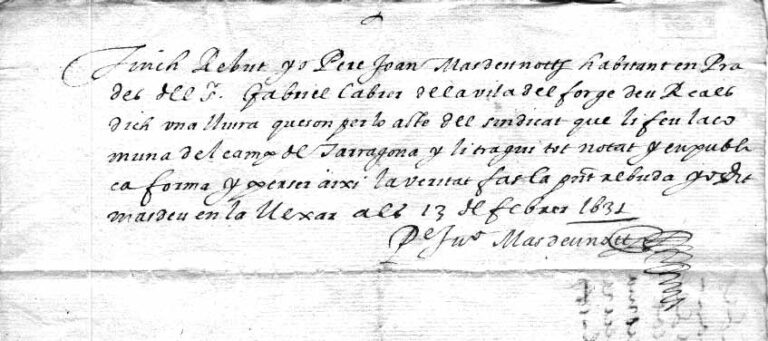 Tinch Rebut yo Pere Joan Masdeunotts habitant en Pra
des dell Sr. Gabriel Cabrer de la vila del forge deu Reals
dich una lliura que son per lo acte del sindicat que li feu la co
muna del camp de Tarragona y li tragui tot notat y en publi
ca forma y per ser aixi la veritat fas la pnt rebuda yo dit
masdeu en la Alexar als 13 de febrer 1631
Pe Juo Masdeunott